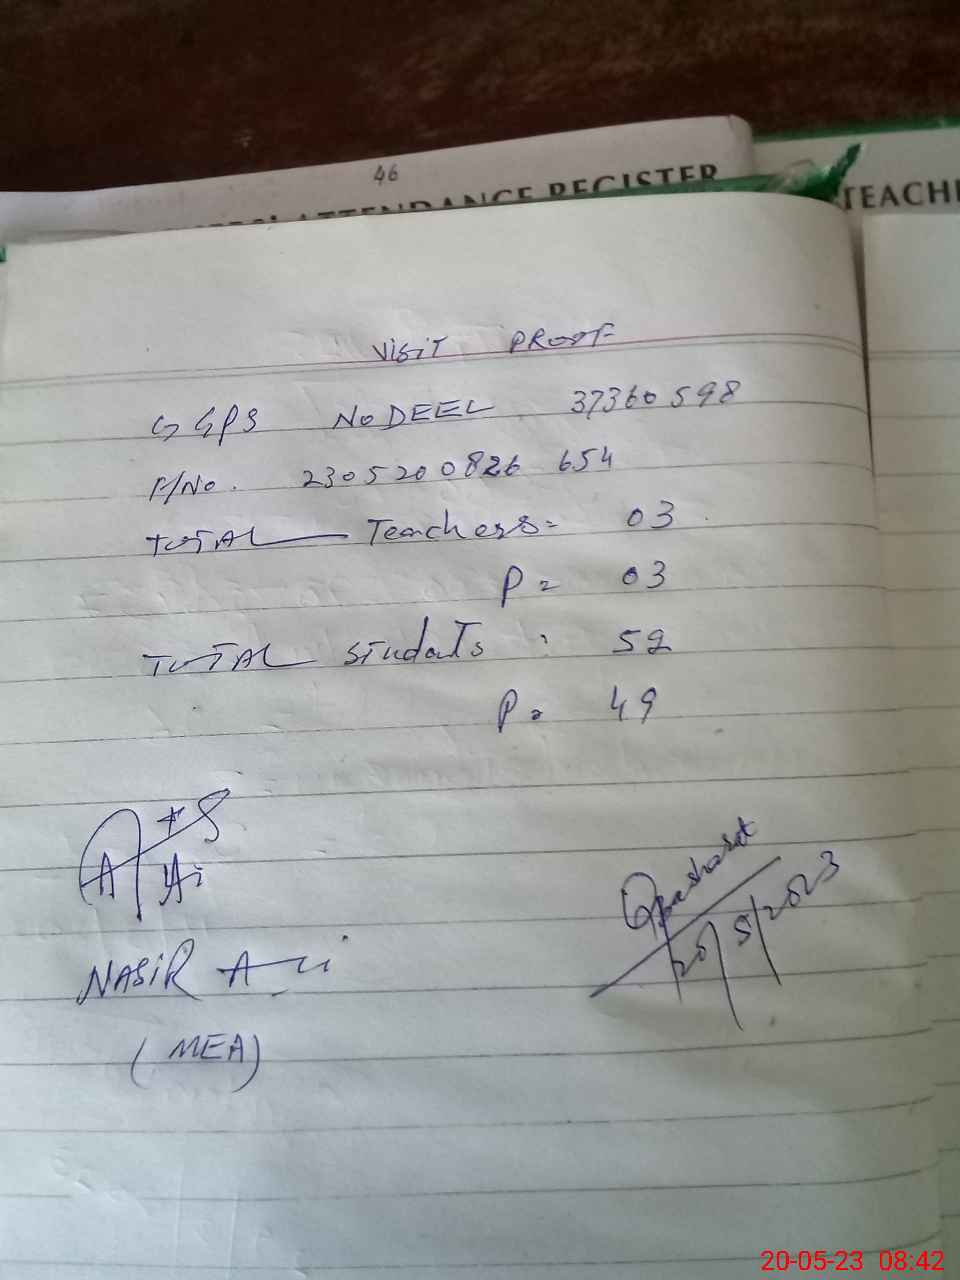 46
ATTENDANCE REGISTER
TEACH
VISIT PROOF
GGPS NODEEL 37360598
P/No. 2305200826 654
TOTAL Teachers = 03
P = 03
TOTAL Students : 52
P = 49
NASIR ALI
(MEA)
20/5/2023
20-05-23 08:42